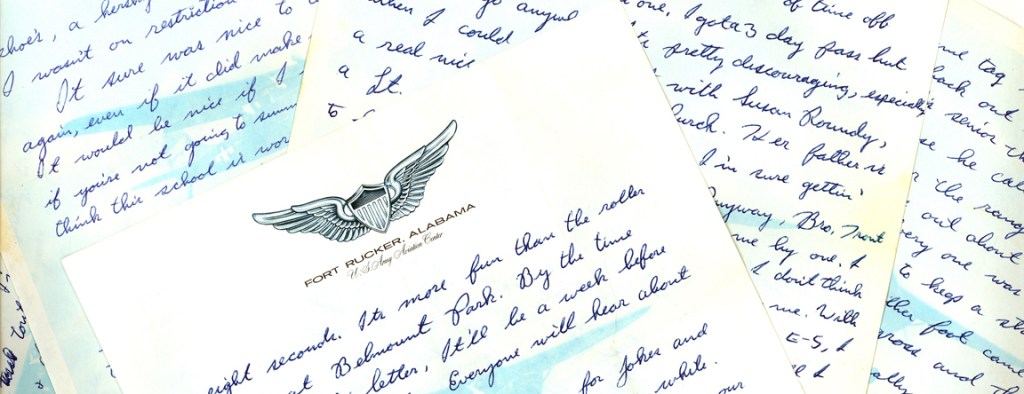 shoe's, a hershey
I wasn't on restriction
It sure was nice to
again, even if it did make
It would be nice if I
if you're not going to summ
think this school is wor
go anyul
when I could
a real nice
a Lt.
to
of time off
one. I got a 3 day pass but
pretty discouraging, especially
with Susan Roundy,
urch. Her father is
I'm sure gettin'
nyway, Bro. Trout
me by one. I
I don't think
me. With
E-5, I
me tag
back out
senior th
se he cal
the rang
out about
very one was
to keep a st
ther foot came
gross and th
ally
FORT RUCKER, ALABAMA
U.S. Army Aviation Center
eight seconds. Its more fun than the roller
at Belmount Park. By the time
letter, It'll be a week before
Everyone will hear about
for Jokes and
while.
our